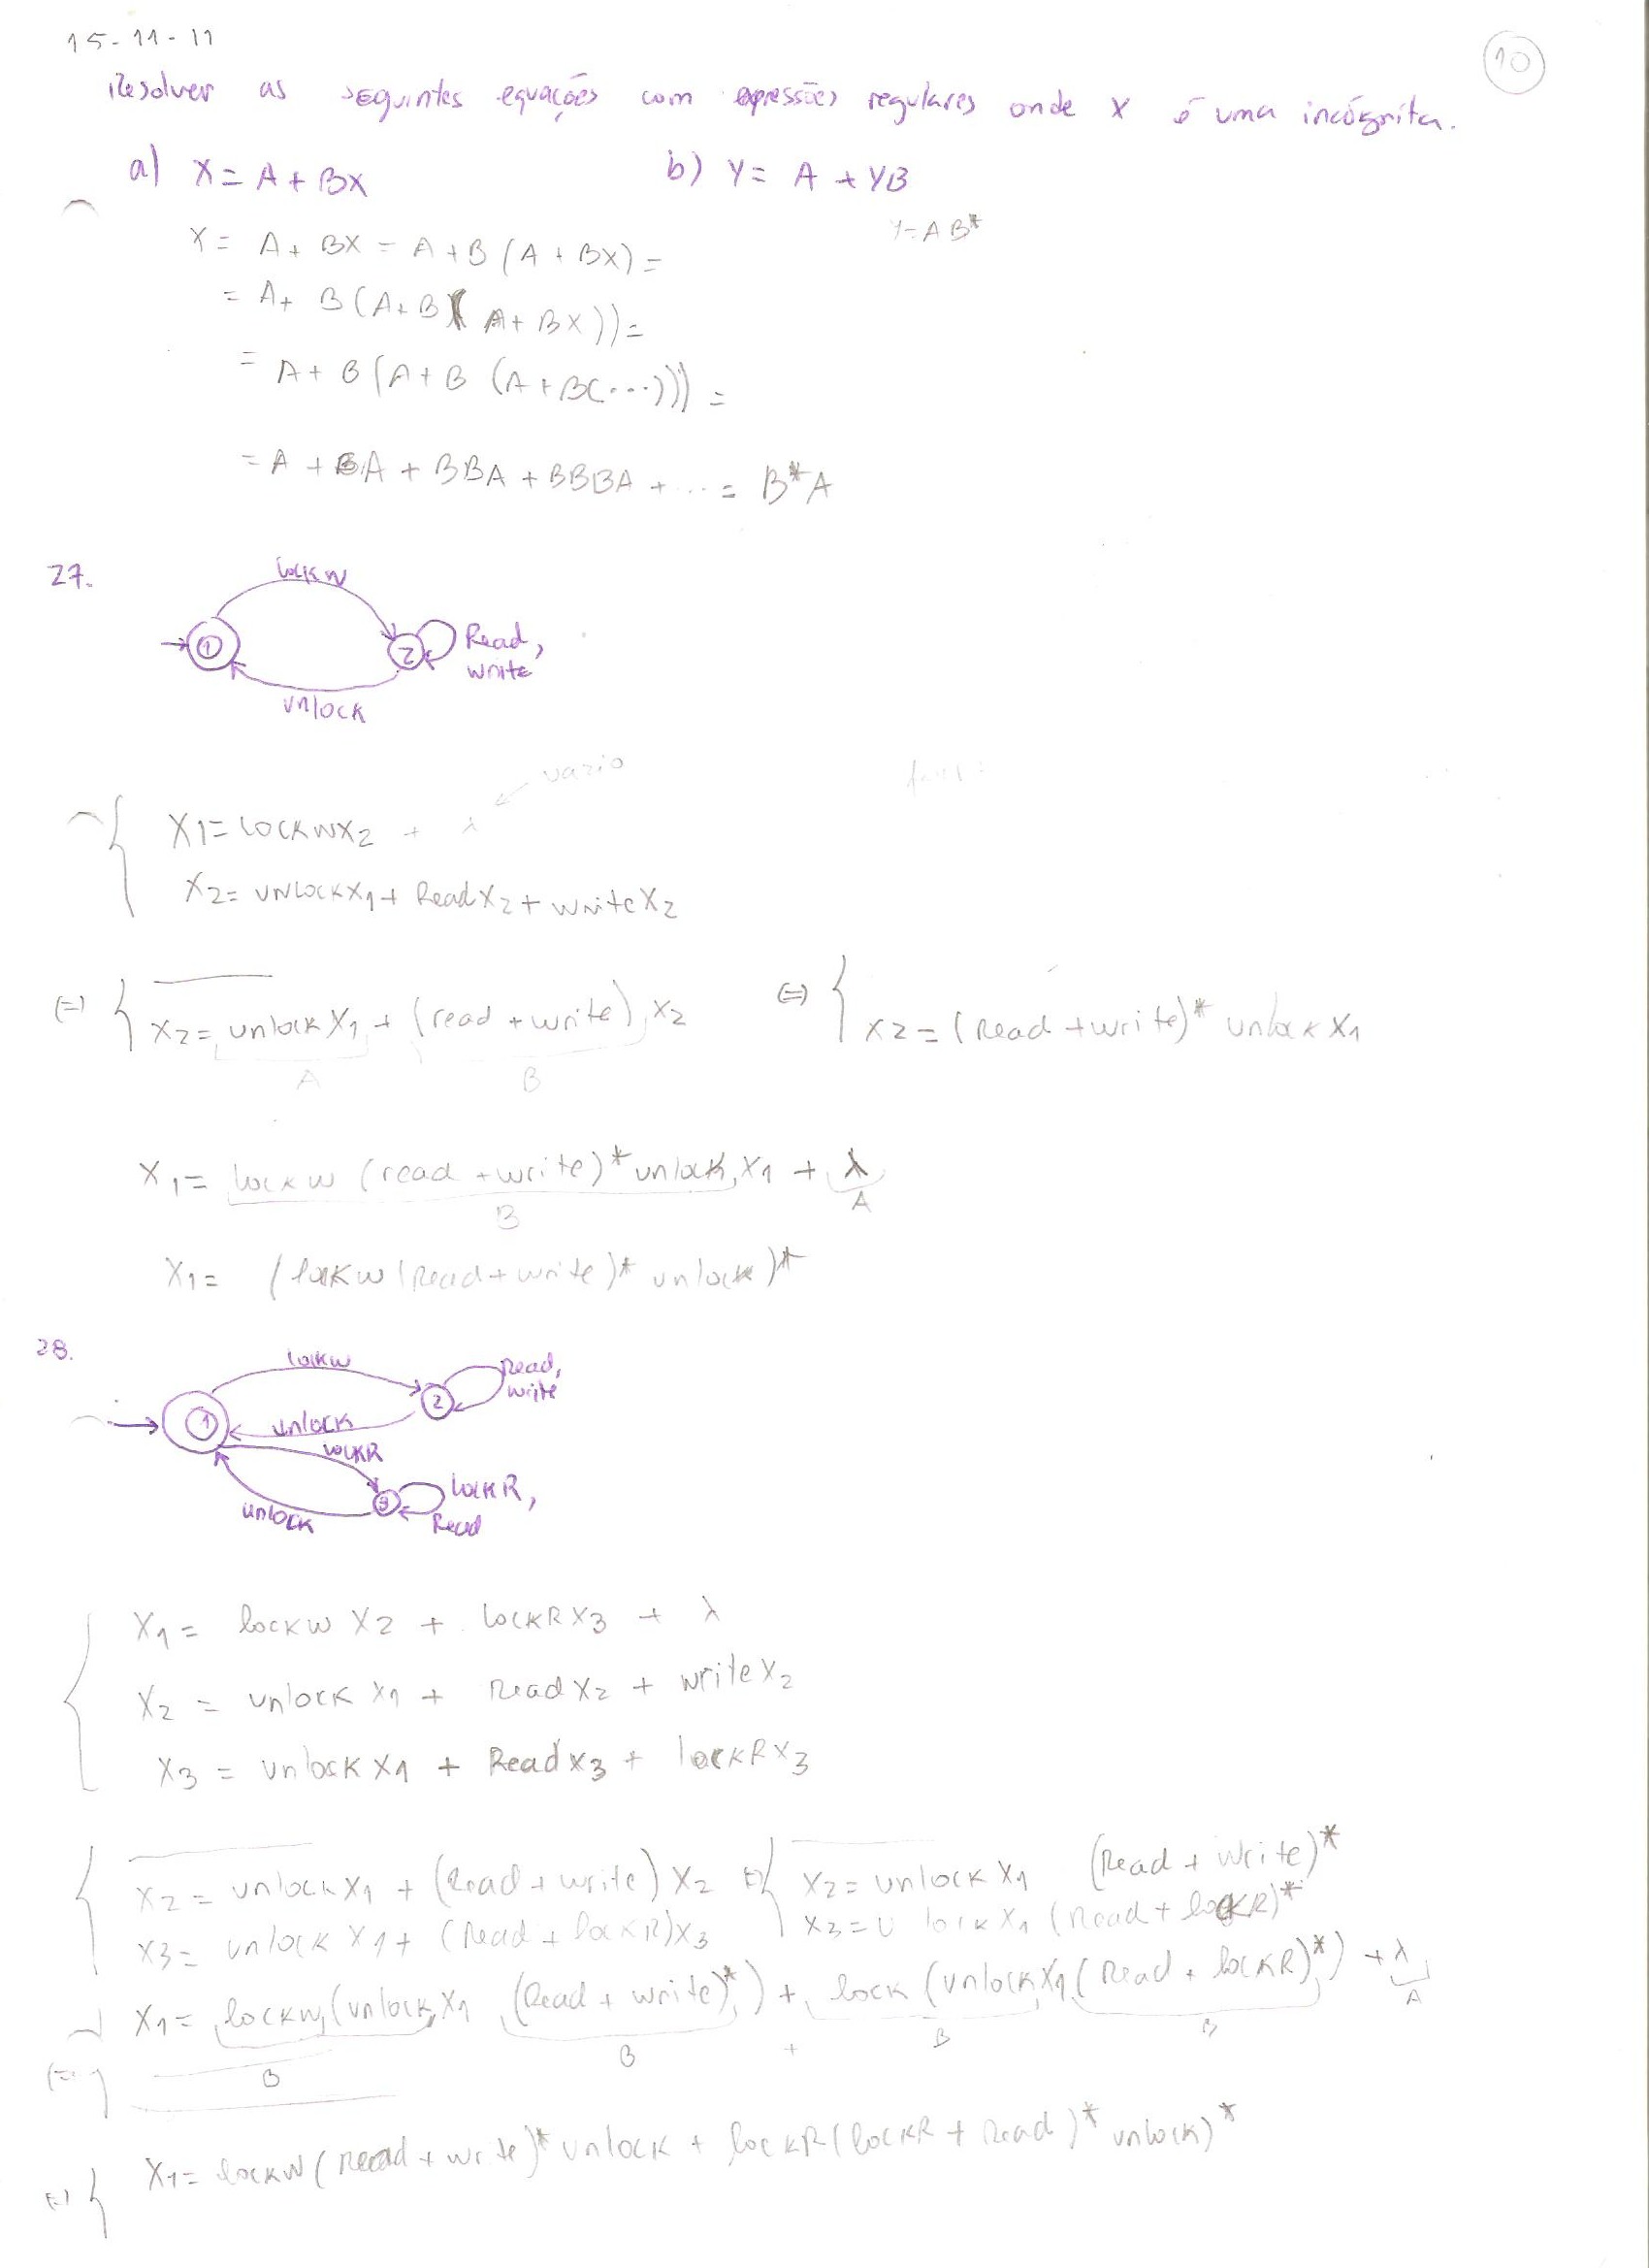 15-11-11
10
Resolver as seguintes equações com expressões regulares onde X é uma incógnita.
a) X = A + BX b) Y = A + YB
X = A + BX = A + B (A + BX) = Y = AB*
= A + B (A + B ( A + BX)) =
= A + B (A + B (A + B(...))) =
= A + BA + BBA + BBBA + ... = B*A
27.
lockW
1
2
Read,
write
unlock
vazio
X1 = lockWX2 + λ
X2 = unlockX1 + ReadX2 + writeX2
(=) { X2 = unlock X1 + (read + write) X2 (=) { X2 = (Read + write)* unlock X1
A B
X1 = lockW (read + write)* unlock X1 + λ
B A
X1 = (lockW (Read + write)* unlock)*
28.
lockW
Read,
write
1
2
unlock
lockR
lockR,
3
unlock
Read
X1 = lockW X2 + lockRX3 + λ
X2 = unlock X1 + ReadX2 + writeX2
X3 = unlock X1 + ReadX3 + lockRX3
X2 = unlock X1 + (Read + write) X2 (=) { X2 = unlock X1 (Read + write)*
X3 = unlock X1 + (Read + lockR)X3 X3 = U lock X1 (Read + lockR)*
X1 = lockW (unlock X1 (Read + write)*) + lock (unlock X1 (Read + lockR)*) + λ
B B + B B A
(=)
(=) { X1 = lockW (Read + write)* unlock + lockR (lockR + Read)* unlock)*